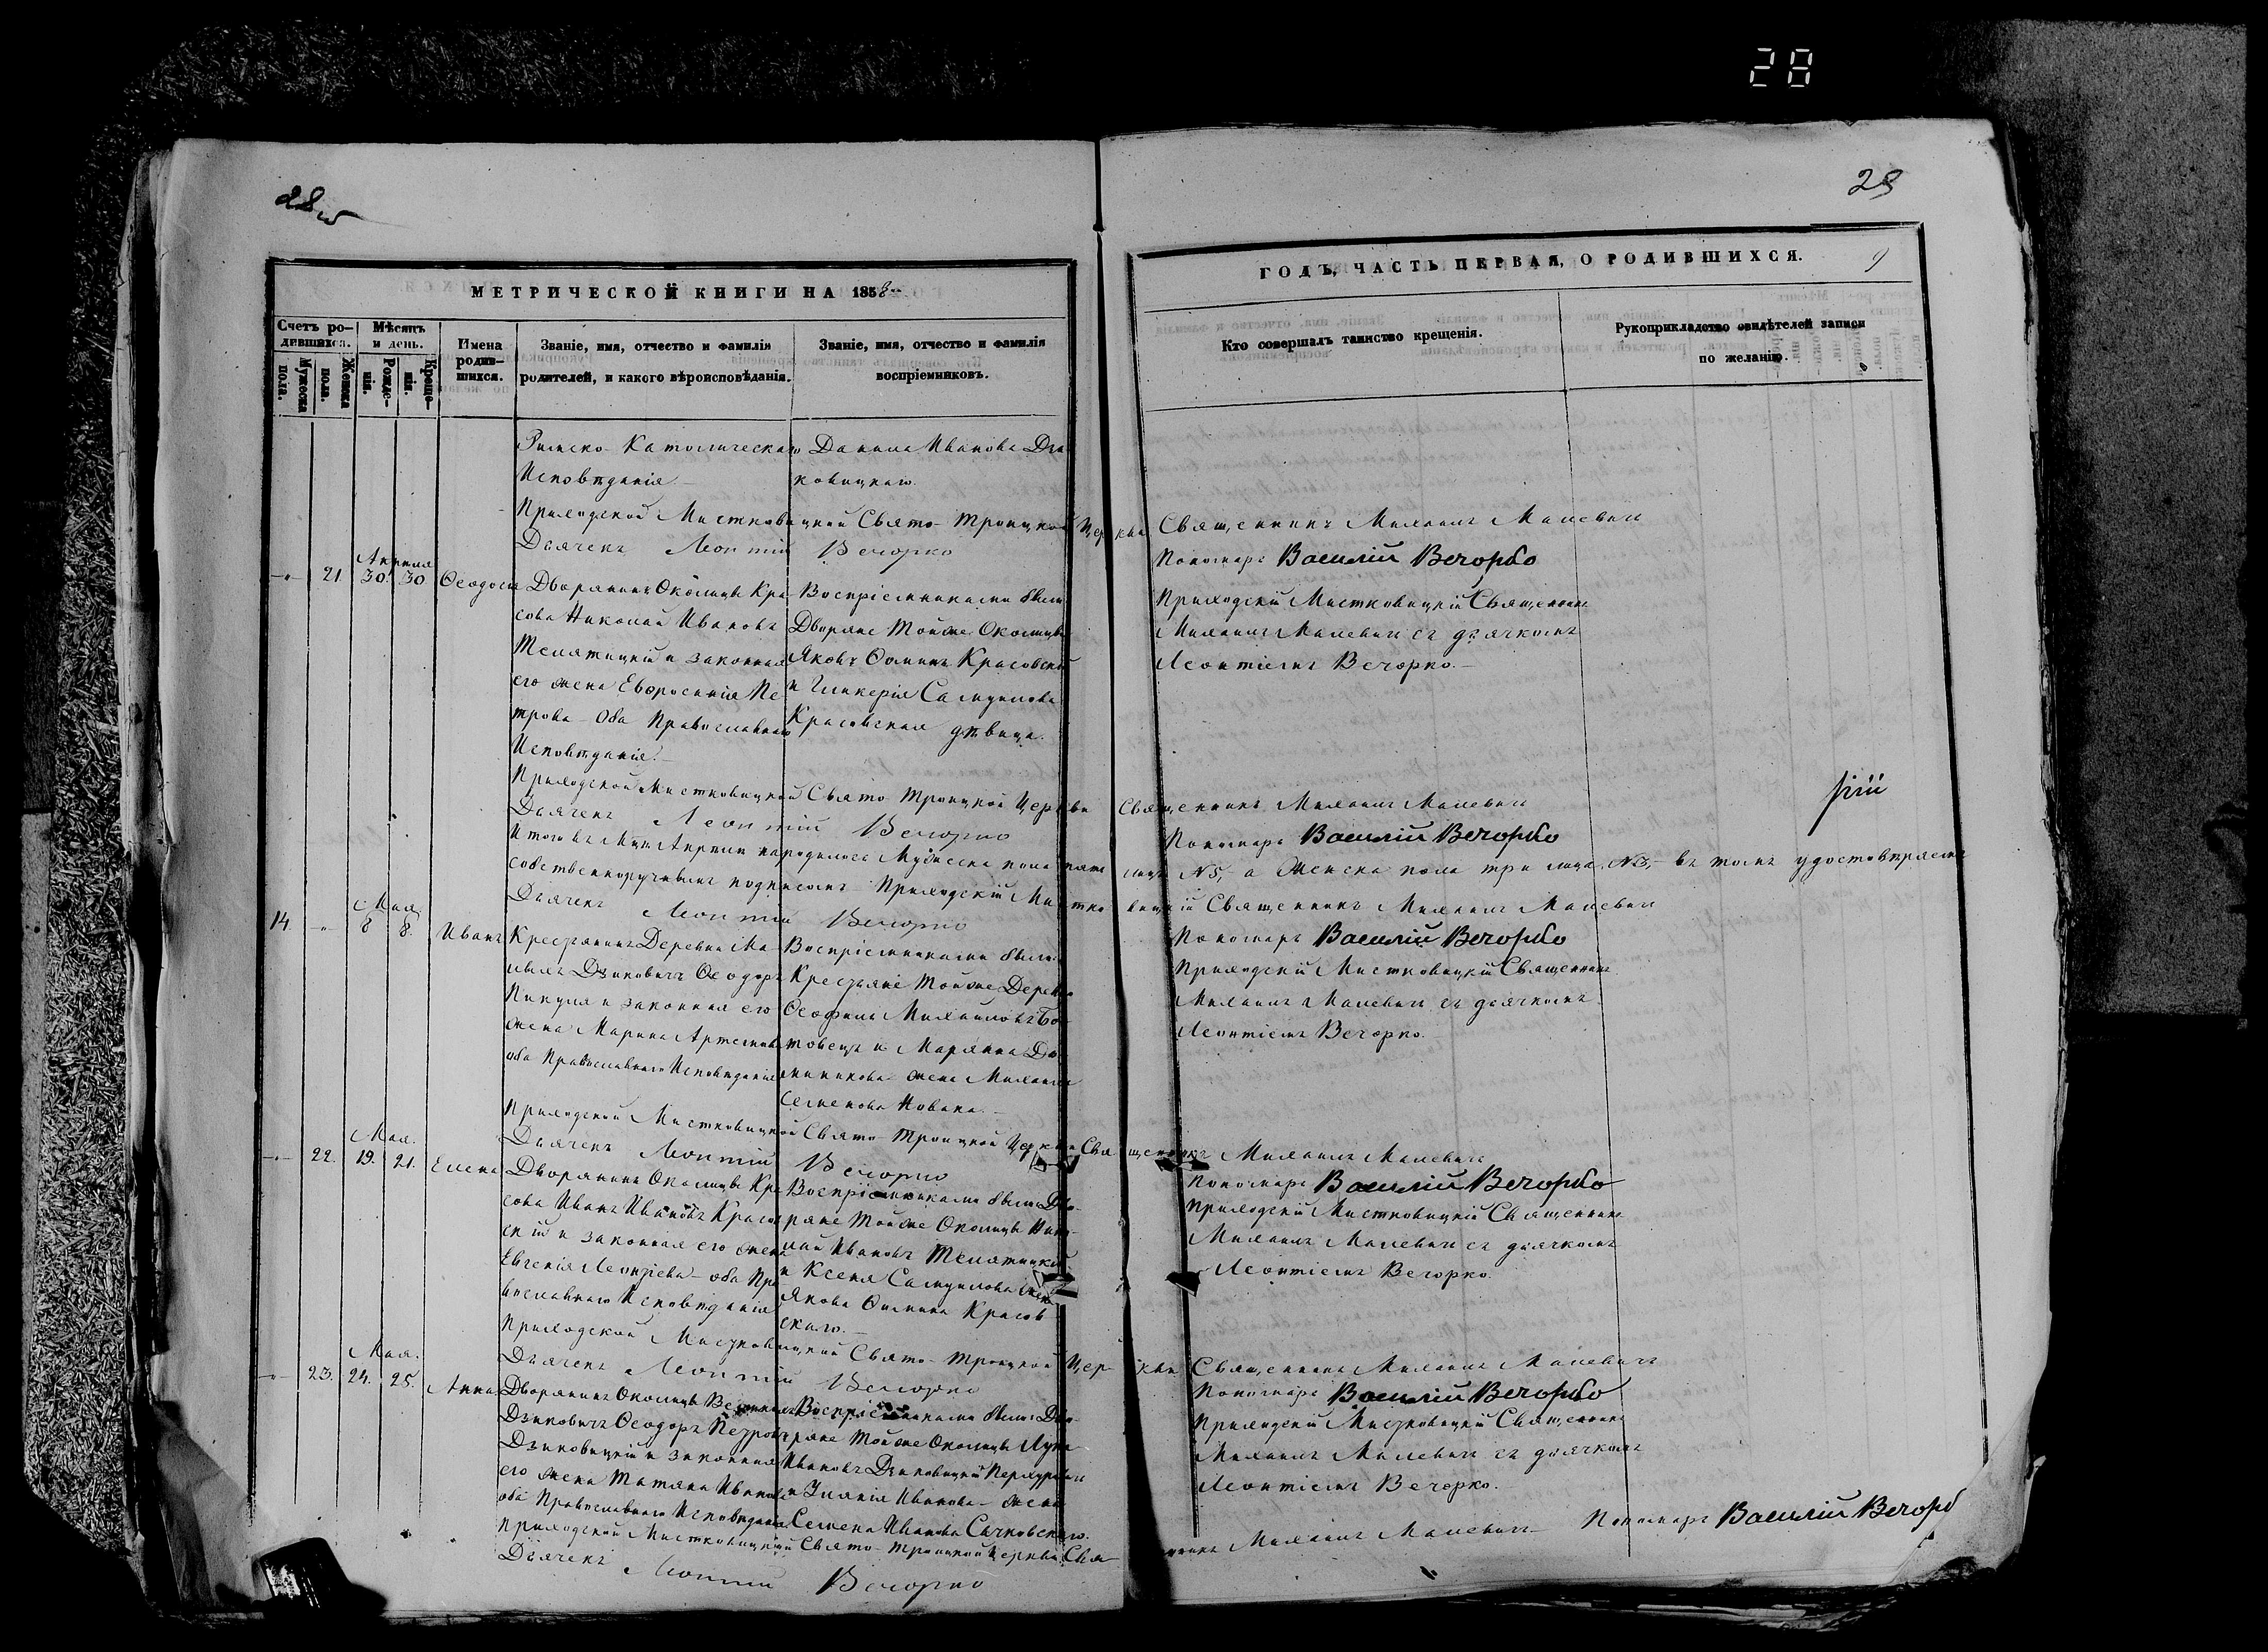 28
28
29
МЕТРИЧЕСКОЙ КНИГИ НА 1858
ГОДЪ, ЧАСТЬ ПЕРВАЯ, О РОДИВШИХСЯ.
9
Счетъ родившихся.
Мужеска пола.
Женска пола.
Мѣсяцъ и день.
Рожденія.
Крещенія.
Имена родившихся.
Званіе, имя, отчество и фамилія
родителей, и какого вѣроисповѣданія.
Званіе, имя, отчество и фамилія
воспріемниковъ.
Кто совершалъ таинство крещенія.
Рукоприкладство свидѣтелей записи
по желанію.
Римско-Католическаго
Исповѣданія
Данила Иванова Дзи
ковицкаго.
Приходской Мистковицкой Свято-Троицкой Церкви Священникъ Михаилъ Малевич
Дьячекъ Леонтій Вечорко
Пономарь Василій Вечорко
Апреля
21 30 30 Ѳеодосія
Дворянинъ Околицы Кра
сова Николай Ивановъ
Телятицкій и законная
его жена Евфросинія Пе
трова - Оба Православнаго
Исповѣданія.
Воспріемниками были
Дворяне тойже Околицы
Яковъ Ѳоминъ Красовскій
и Гликерія Самуилова
Красовская дѣвица.
Приходскій Мистковицкій Священникъ
Михаилъ Малевич съ дьячкомъ
Леонтіемъ Вечорко.
Приходской Мистковицкой Свято Троицкой Церкви Священникъ Михаилъ Малевич
Дьячекъ Леонтій Вечорко
Пономарь Василій Вечорко
Итого въ Мцѣ Апреле народилось Мужеска пола пять лицъ №5, а Женска пола три лица №3, въ томъ удостовѣряемъ
собственноручнымъ подписомъ Приходскій Мистковицкій Священникъ Михаилъ Малевич
Дьячекъ Леонтій Вечорко
Пономарь Василій Вечорко
Мая
14 8 8. Иванъ
Крестьянинъ Деревни Ма
лыхъ Дзиковичъ Ѳеодоръ
Пикуля и законная его
жена Марина Артемова
оба Православнаго Исповѣданія
Воспріемниками были
Крестьяне тойже Деревни
Ѳеофилъ Михаиловъ Бо
товецъ и Маріанна До
миникова жена Михаила
Семенова Новака.
Приходскій Мистковицкій Священникъ
Михаилъ Малевич съ дьячкомъ
Леонтіемъ Вечорко.
Приходской Мистковицкой Свято-Троицкой Церкви Священникъ Михаилъ Малевичъ
Дьячекъ Леонтій Вечорко
Пономарь Василій Вечорко
Мая.
22. 19. 21. Елена
Дворянинъ Околицы Кра
сова Иванъ Ивановъ Красов
скій и законная его жена
Евгенія Леонтіева - оба Пра
вославнаго Исповѣданія
Воспріемниками были Дво-
ряне тойже Околицы Нико-
лай Ивановъ Телятицкій
и Ксенія Самуилова жена
Якова Ѳомина Красов
скаго.
Приходскій Мистковицкій Священникъ
Михаилъ Малевич съ дьячкомъ
Леонтіемъ Вечорко.
Приходской Мистковицкой Свято-Троицкой Церкви Священникъ Михаилъ Малевичъ
Дьячекъ Леонтій Вечорко
Пономарь Василій Вечорко
Мая.
23. 24. 25. Анна
Дворянинъ Околицы Великихъ
Дзиковичъ Ѳеодоръ Петровъ
Дзиковицкій и законная
его жена Татяна Иванова
оба Православнаго Исповѣданія
Воспріемниками были Дво-
ряне тойже Околицы Лука
Ивановъ Дзиковицкій
и Уліянія Иванова - жена
Семена Иванова Сачковскаго.
Приходскій Мистковицкій Священникъ
Михаилъ Малевич съ дьячкомъ
Леонтіемъ Вечорко.
Приходской Мистковицкой Свято-Троицкой Церкви Священникъ Михаилъ Малевич
Дьячекъ Леонтій Вечорко
Пономарь Василій Вечорк